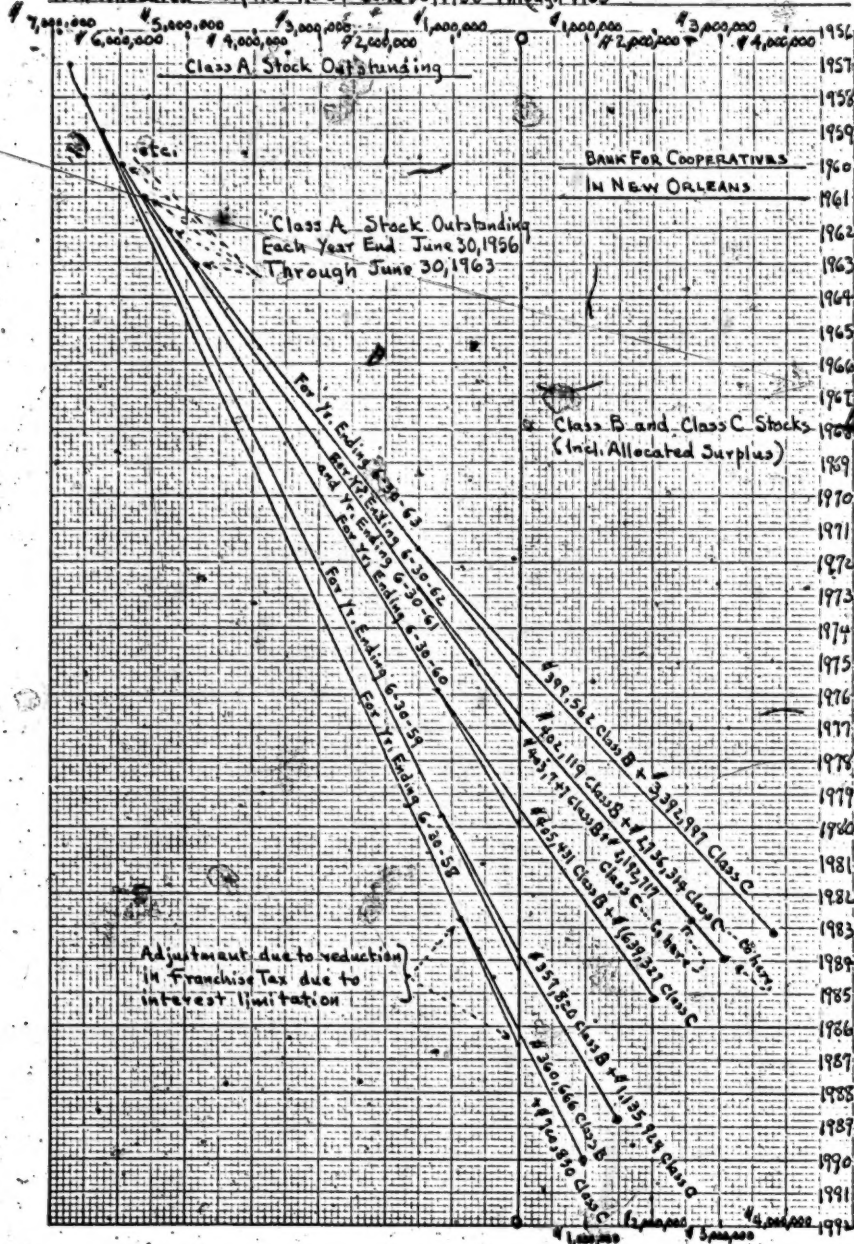 $7,000,000 $5,000,000 $3,000,000 $1,000,000 0 $1,000,000 $3,000,000
$6,000,000 $4,000,000 $2,000,000 $2,000,000 $4,000,000
Class A Stock Outstanding
BANK FOR COOPERATIVES
IN NEW ORLEANS
etc.
Class A Stock Outstanding
Each Year End June 30, 1956
Through June 30, 1963
Class B and Class C Stocks
(Incl. Allocated Surplus)
For Yr. Ending 6-30-63
For Yr. Ending 6-30-62
and Yr. Ending 6-30-61
For Yr. Ending 6-30-60
For Yr. Ending 6-30-59
For Yr. Ending 6-30-58
$399,562 Class B + $3,392,997 Class C
$402,119 Class B + $2,736,314 Class C
$403,747 Class B + $2,192,717
Class C to here
$405,431 Class B + $1,639,327 Class C
$357,820 Class B + $1,135,929 Class C
$360,666 Class B
Class C
Adjustment due to reduction
in Franchise Tax due to
interest limitation
1956
1957
1958
1959
1960
1961
1962
1963
1964
1965
1966
1967
1968
1969
1970
1971
1972
1973
1974
1975
1976
1977
1978
1979
1980
1981
1982
1983
1984
1985
1986
1987
1988
1989
1990
1991
1992
0 $1,000,000 $2,000,000 $3,000,000 $4,000,000